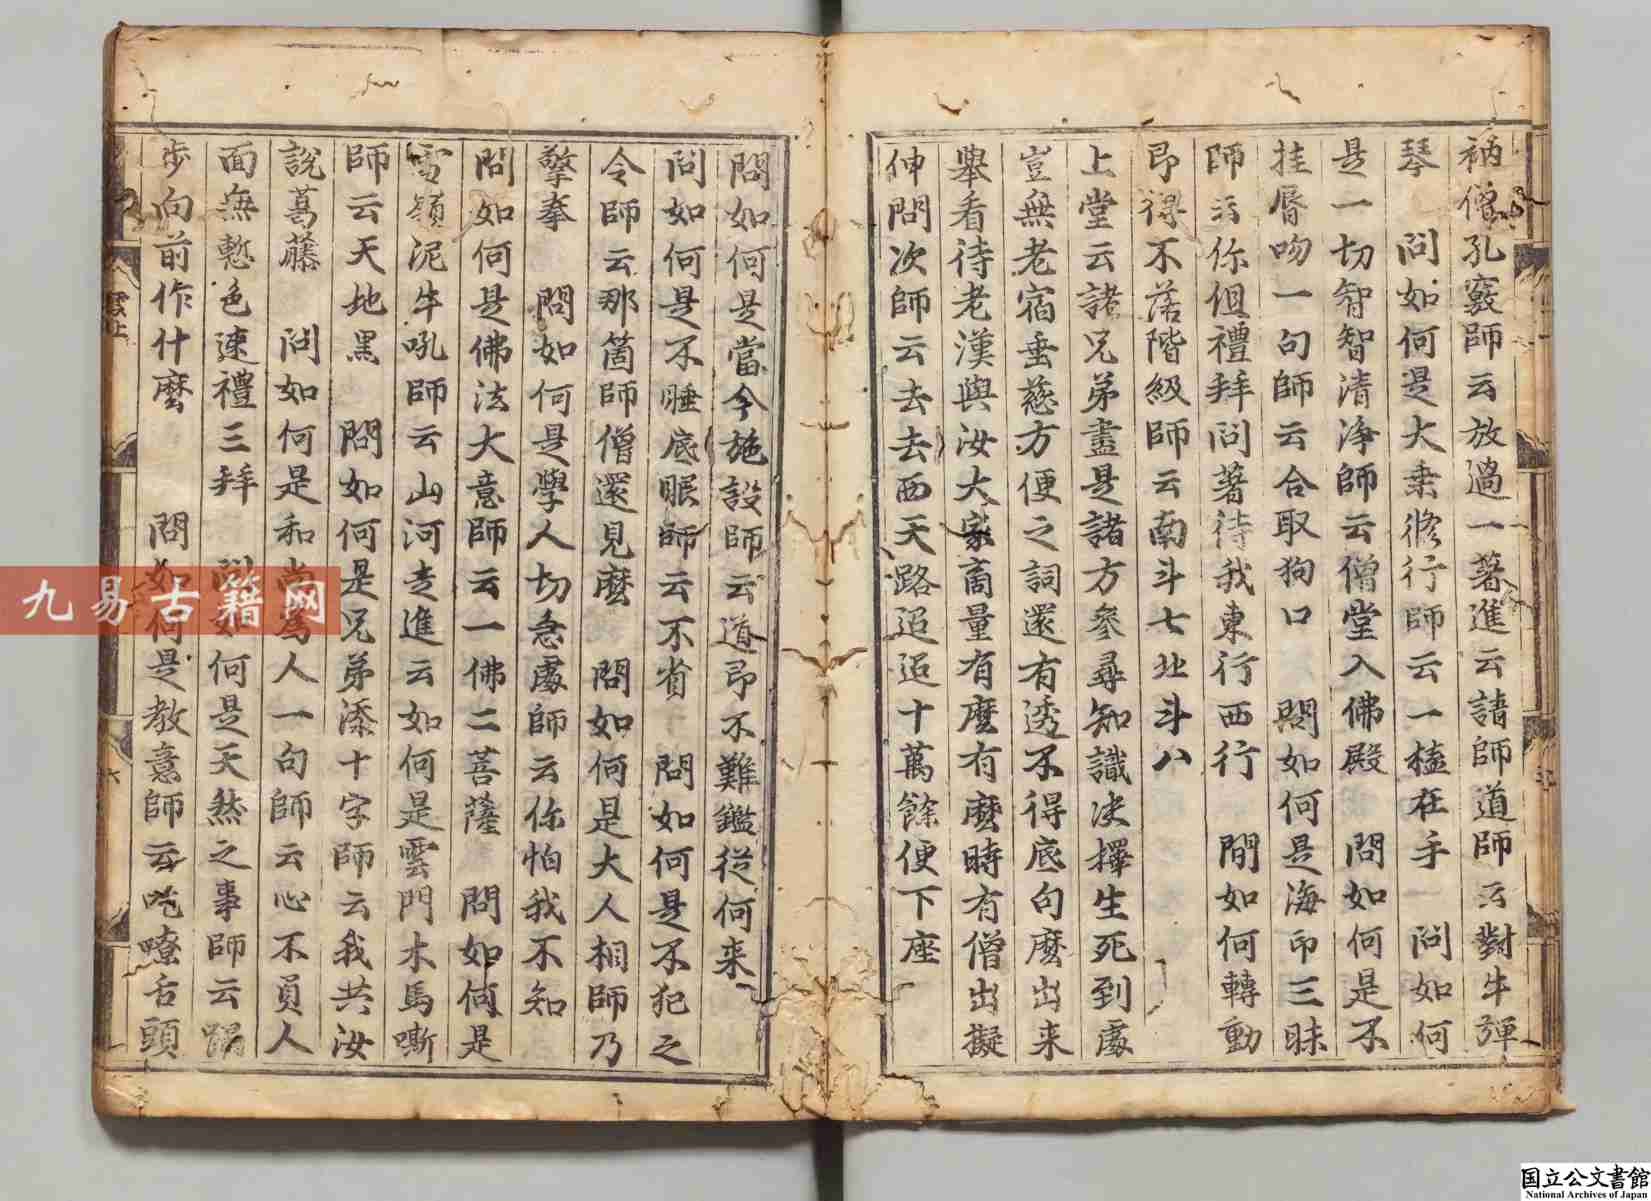 衲僧孔竅師云放過一著進云請師道師云對牛彈
琴　問如何是大乗修行師云一榼在手　問如何
是一切智智清淨師云僧堂入佛殿　問如何是不
挂脣吻一句師云合取狗口　問如何是海印三昧
師云你但禮拜問著待我東行西行　問如何轉動
即得不落階級師云南斗七北斗八
上堂云諸兄弟盡是諸方參尋知識決擇生死到處
豈無老宿垂慈方便之詞還有透不得底句麽出来
舉看待老漢與汝大家商量有麽有麽時有僧出擬
伸問次師云去去西天路迢迢十萬餘便下座
問如何是當今施設師云道即不難鑑從何来
問如何是不睡底眼師云不省　問如何是不犯之
令師云那箇師僧還見麽　問如何是大人相師乃
擎拳　問如何是學人切急處師云你怕我不知
問如何是佛法大意師云一佛二菩薩　問如何是
雪嶺泥牛吼師云山河走進云如何是雲門木馬嘶
師云天地黒　問如何是兄弟添十字師云我共汝
說葛藤　問如何是和尚爲人一句師云心不負人
面無慙色速禮三拜　問如何是天然之事師云蹋
步向前作什麽　問如何是教意師云吃嘹舌頭
雲上
六
九易古籍网
国立公文書館
National Archives of Japan